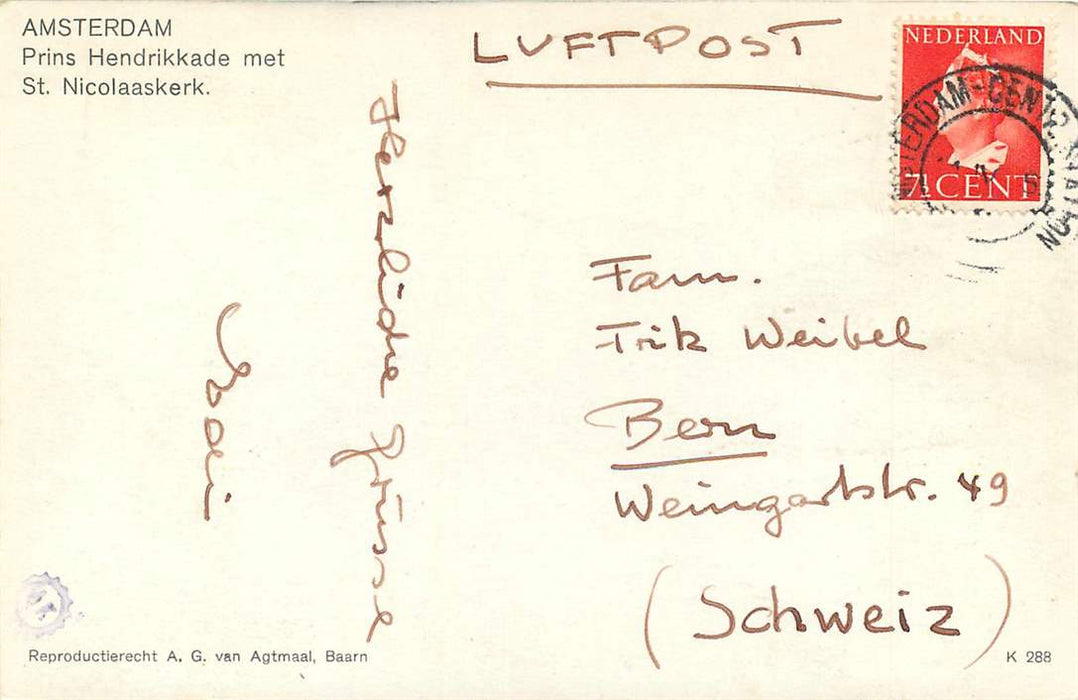 AMSTERDAM
Prins Hendrikkade met
St. Nicolaaskerk.
LUFTPOST
NEDERLAND
7½ CENT
AMSTERDAM-CENTR. STATION
Herzliche Grüsse
Fam.
Frik Weibel
Bern
Weingartstr. 49
(Schweiz)
Reproductierecht A. G. van Agtmaal, Baarn
K 288